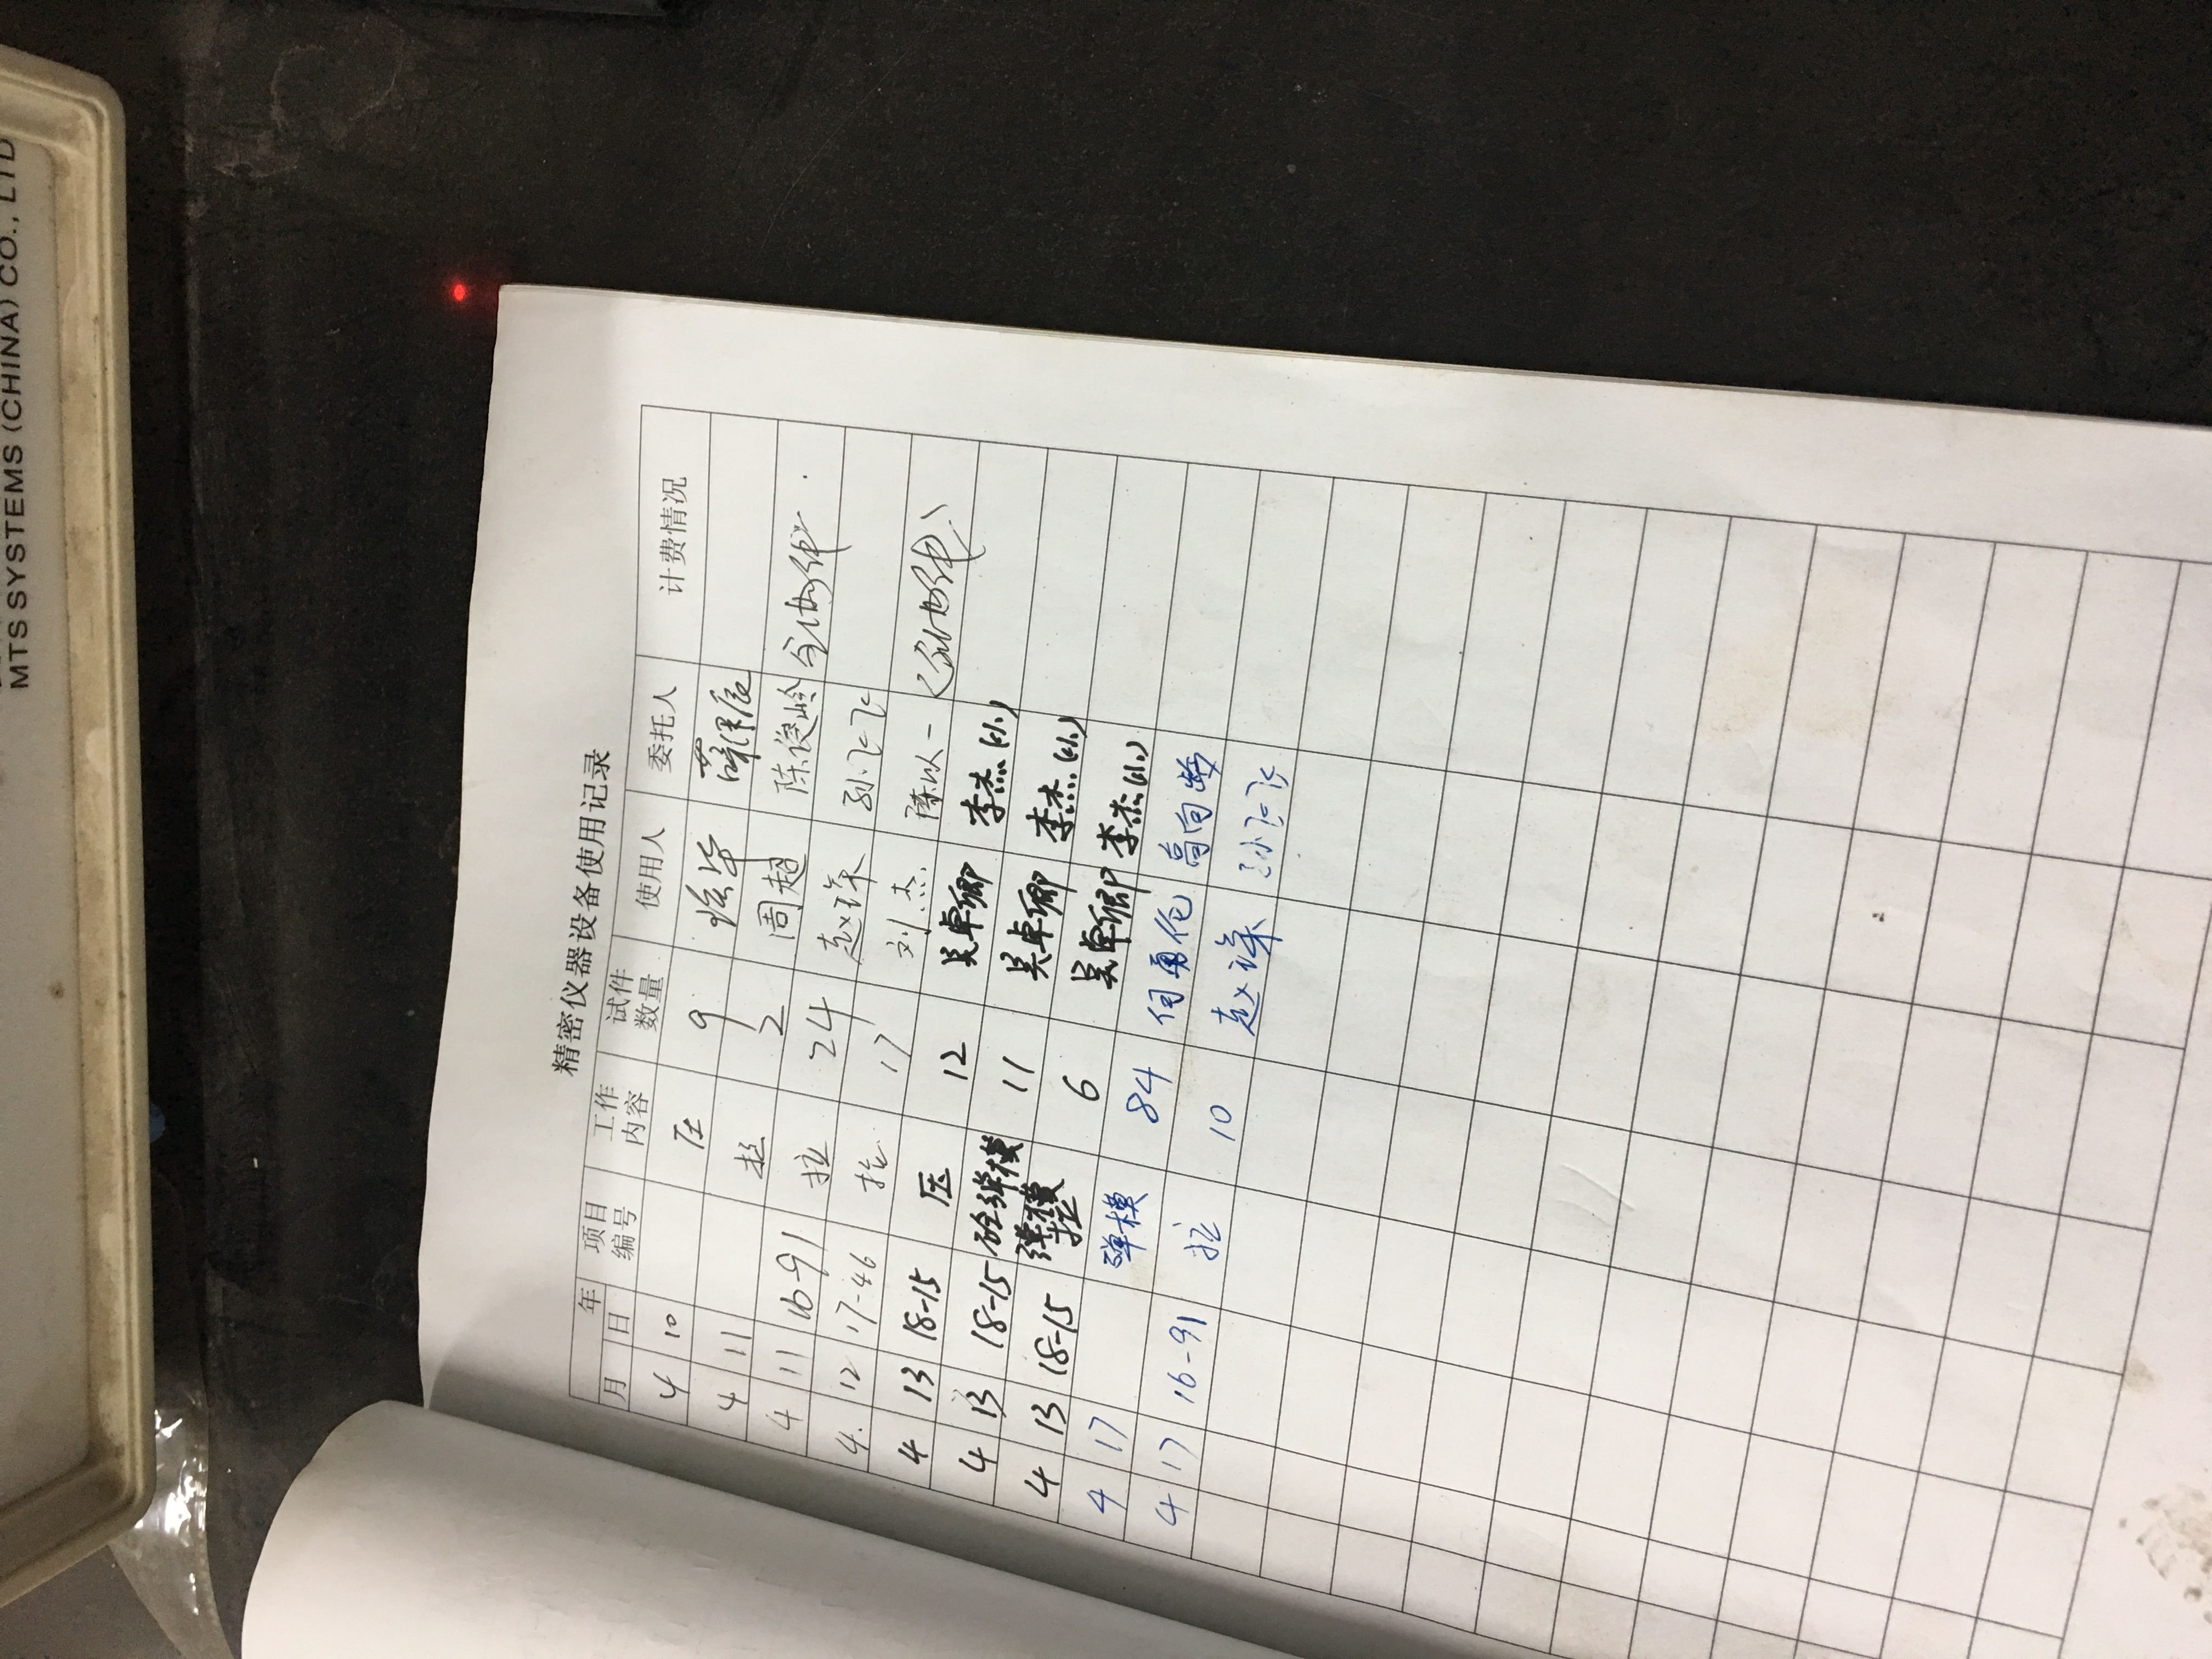 MTS SYSTEMS (CHINA) CO., LTD
精密仪器设备使用记录
年 项目编号 工作内容 试件数量 使用人 委托人 计费情况
月 日
4 10 压 9
4 11 拉 2 周超 陈俊岭
4 11 16-91 拉 24 赵琛 孙飞飞
4. 12 17-46 拉 17 刘杰 陈以一
4 13 18-15 压 12 吴卓卿 李杰(小)
4 13 18-15 砼弹模 11 吴卓卿 李杰(小)
4 13 18-15 弹模拉 6 吴卓卿 李杰(小)
4 17 弹模 84 何勇伦 高向玲
4 17 16-91 拉 10 赵琛 孙飞飞